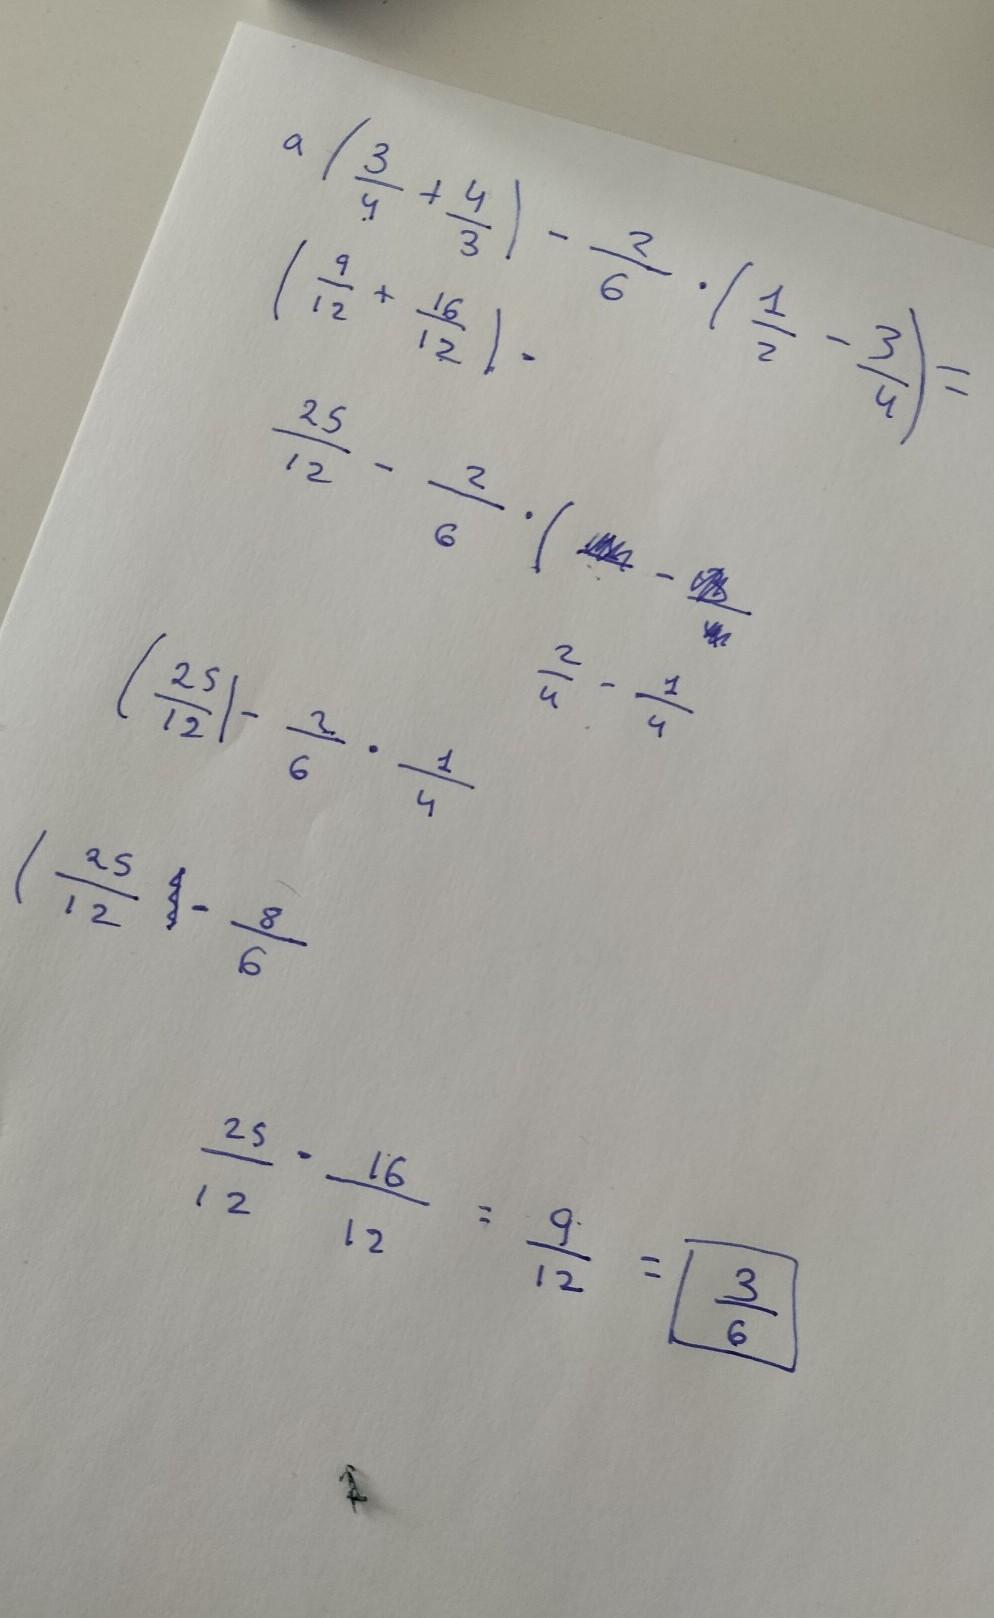 a (3/4 + 4/3) - 2/6 · (1/2 - 3/4) =
(9/12 + 16/12) -
25/12 - 2/6 · ( -
2/4 - 1/4
(25/12) - 2/6 · 1/4
(25/12 - 8/6
25/12 - 16/12 = 9/12 = 3/6